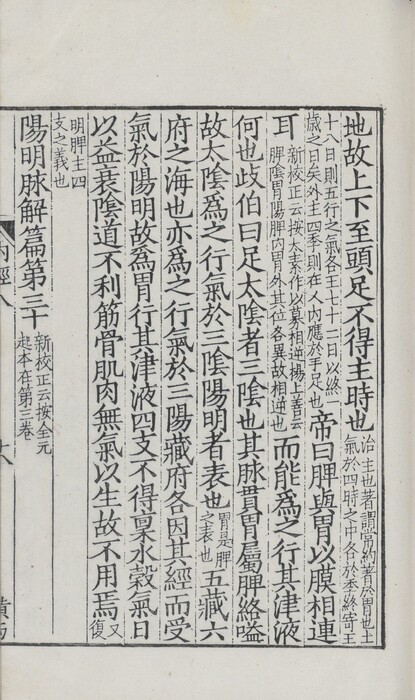 地故上下至頭足不得主時也治主也著謂常約著於胃也土氣於四時之中各於季終寄王
十八日則五行之氣各王七十二日以終一歲之日矣外主四季則在人內應於手足也帝曰脾與胃以膜相連
耳新校正云按太素作以募相逆楊上善云脾陰胃陽脾內胃外其位各異故相逆也而能為之行其津液
何也歧伯曰足太陰者三陰也其脉貫胃屬脾絡嗌
故太陰為之行氣於三陰陽明者表也胃是脾之表也五藏六
府之海也亦為之行氣於三陽藏府各因其經而受
氣於陽明故為胃行其津液四支不得稟水穀氣日
以益衰陰道不利筋骨肌肉無氣以生故不用焉又復
明脾主四支之義也
陽明脉解篇第三十新校正云按全元起本在第三卷
內經八